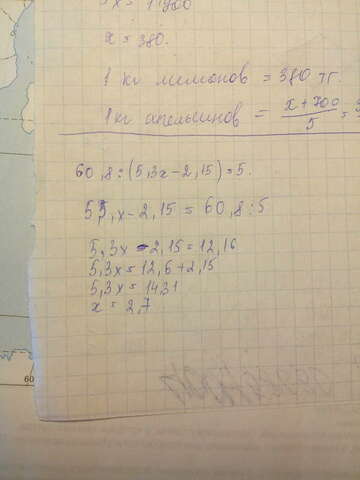 5x = 1900
x = 380.
1 кг лимонов = 380 тг.
1кг апельсинов = x+700/5 =
60,8:(5,3x-2,15)=5.
55,x-2,15=60,8:5
5,3x-2,15=12,16
5,3x=12,6+2,15
5,3x=14,31
x=2,7
60